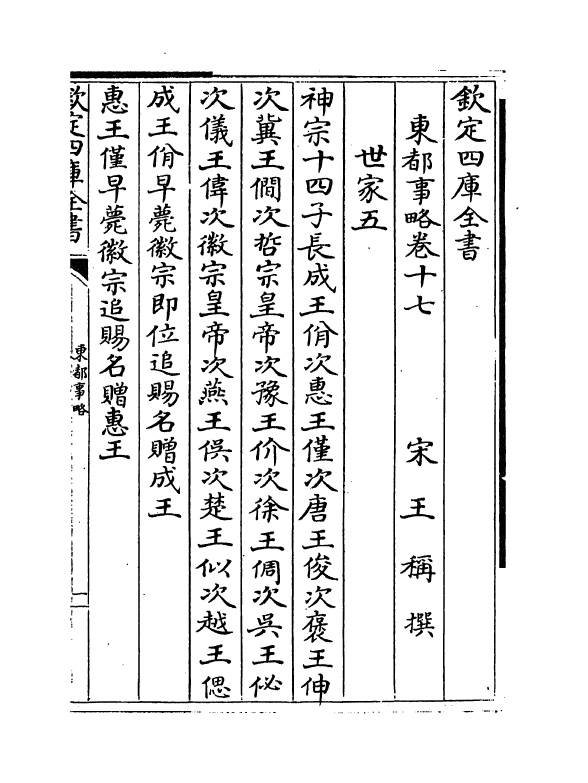 欽定四庫全書
東都事略卷十七
宋王稱撰
世家五
神宗十四子長成王佾次惠王僅次唐王俊次褒王伸
次冀王僩次哲宗皇帝次豫王价次徐王倜次吳王佖
次儀王偉次徽宗皇帝次燕王俁次楚王似次越王偲
成王佾早薨徽宗即位追賜名贈成王
惠王僅早薨徽宗追賜名贈惠王
欽定四庫全書
東都事略
一